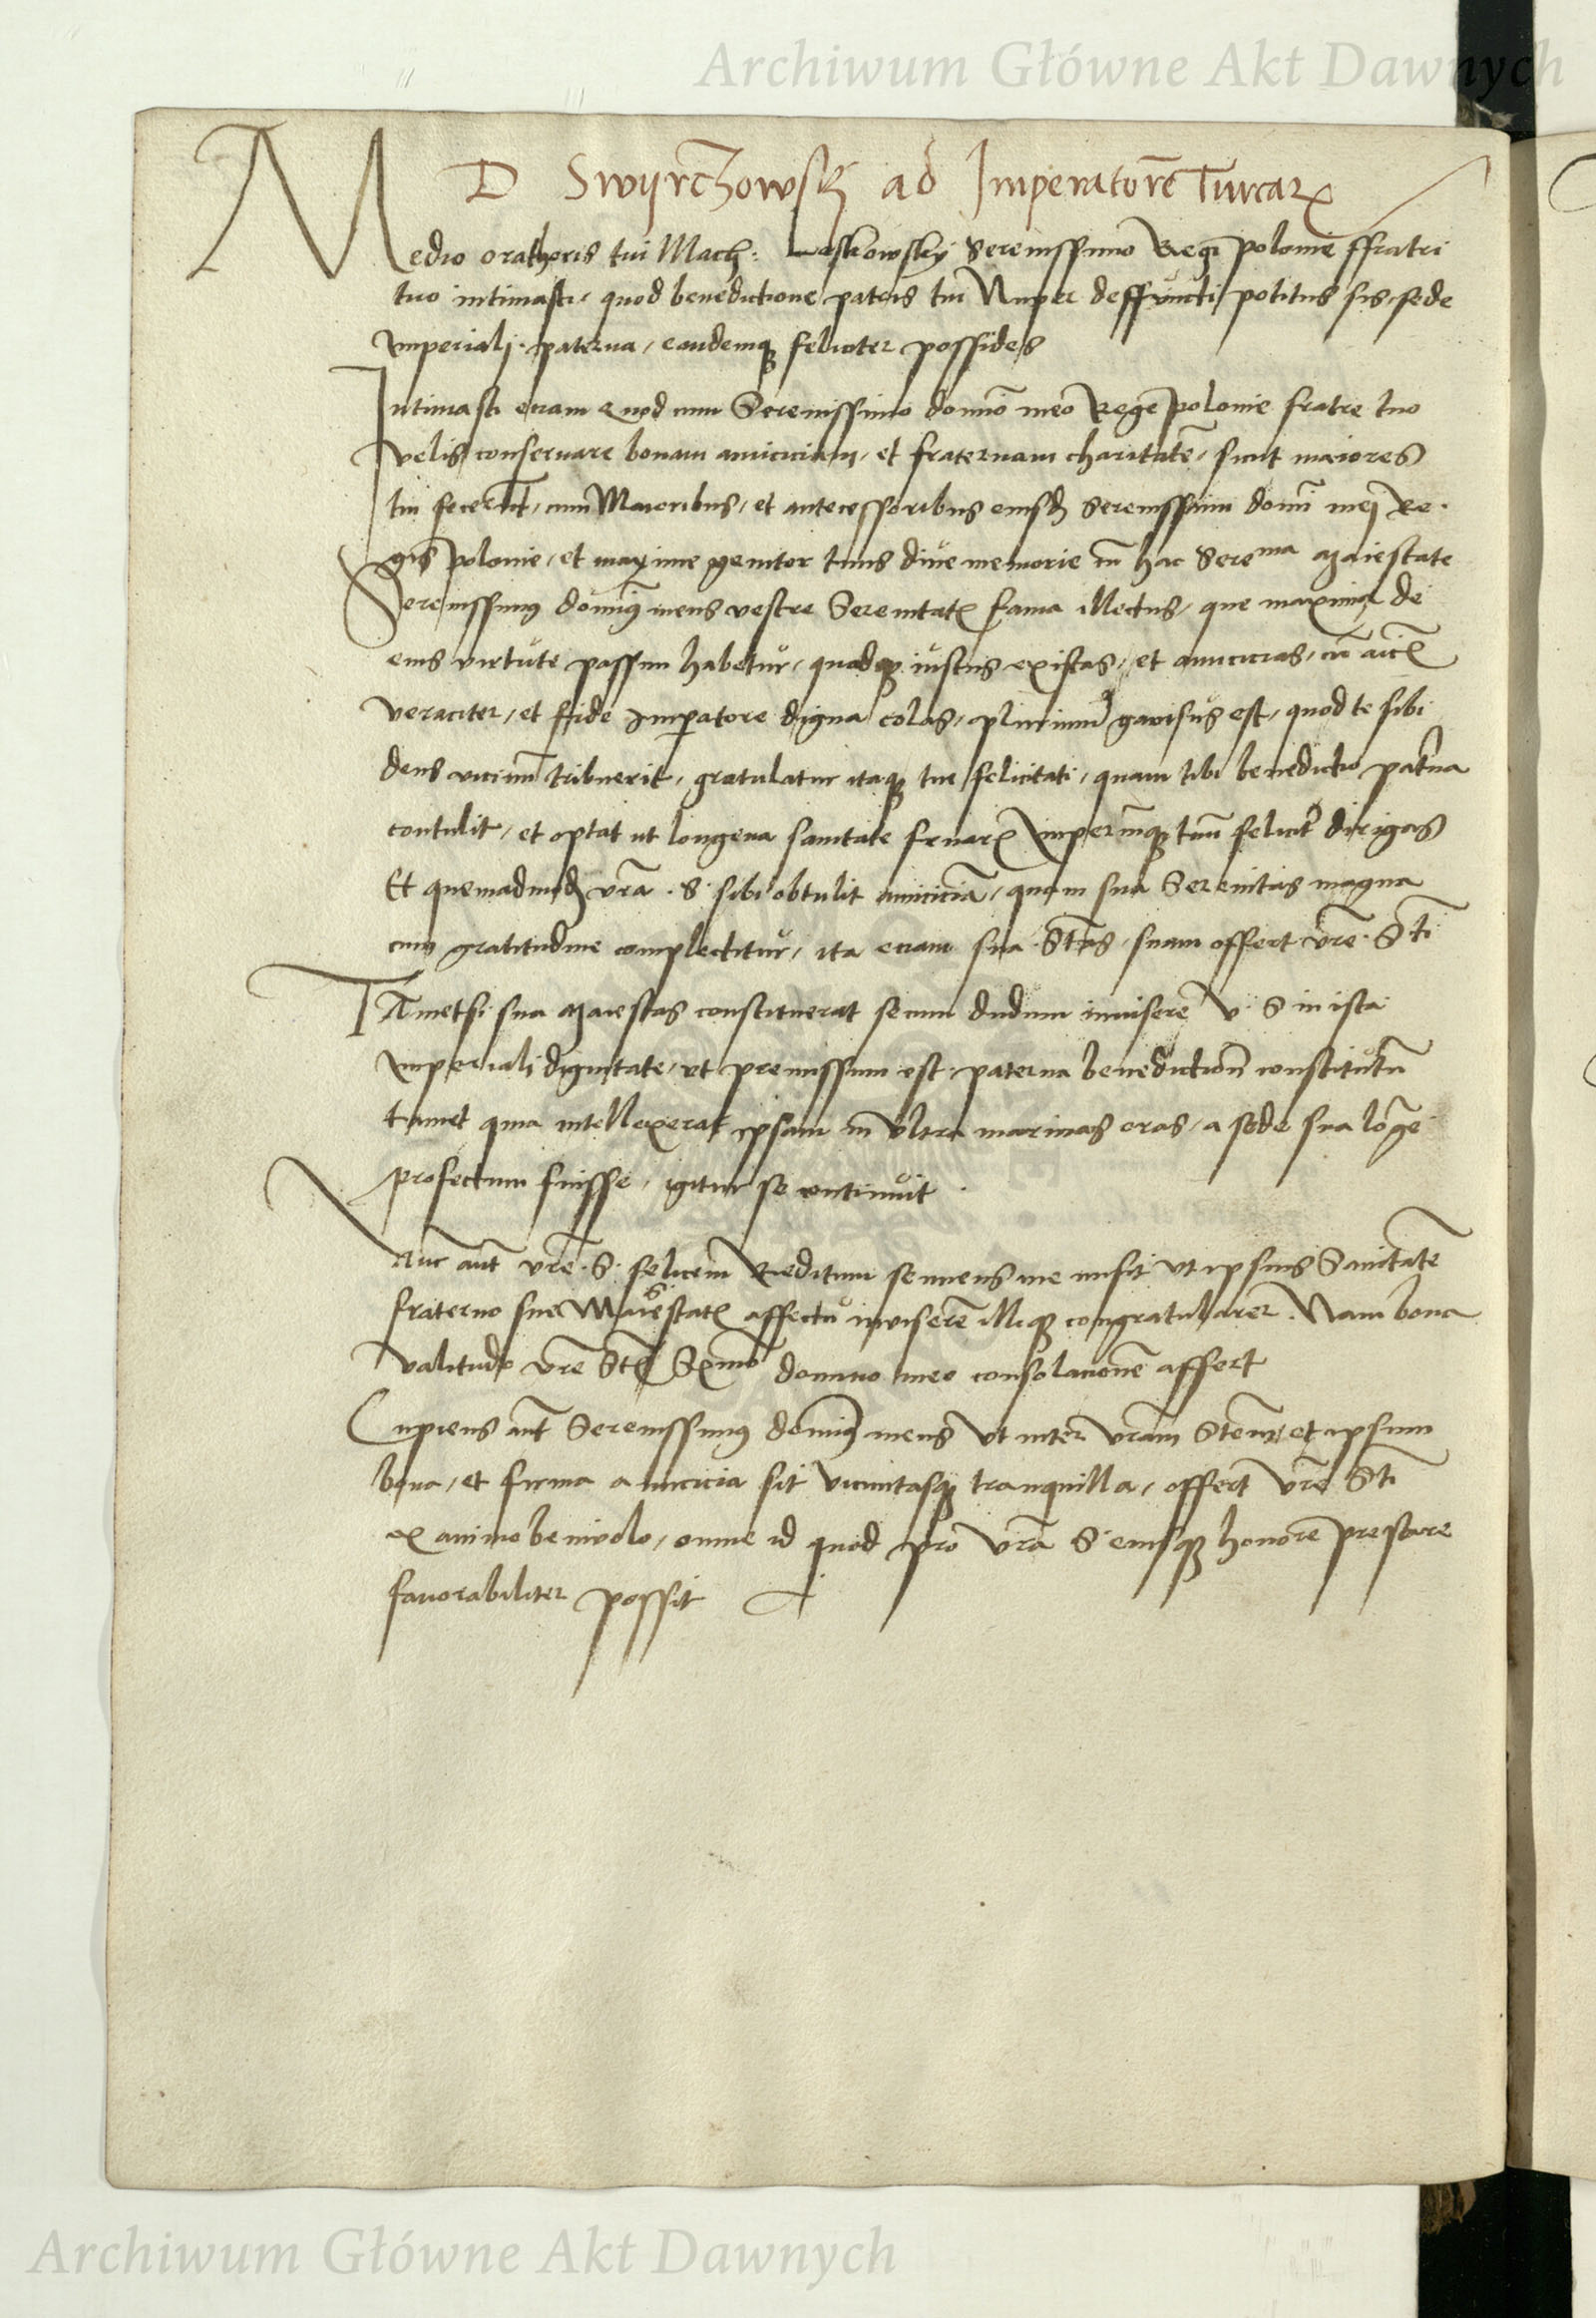 Archiwum Główne Akt Dawnych
D Swyrczowsky ad Imperatorē Turcarꝝ
Medio orathoris tui Mach: Laskowsky Serenissimo Regi polonie ffratri
tuo intimasti, quod benedictione patris tui Nuper deffuncti, potitus sis, sede
Imperiali paterna, eandemqꝫ feliciter possides
Intimasti etiam quod cum Serenissimo domīo meo Rege polonie fratre tuo
velis conseruare bonam amiciciam, et fraternam charitatē, sicut maiores
tui fecerūt, cum Maioribus, et antecessoribus eiusdꝫ Serenissimi domī mei Re-
gis polonie, et maxime genitor tuus diue memorie in hac Serema Maiestate
Serenissimꝰ domīꝰ meus vestre Serenitatꝭ fama illectus, que maxima de
eius virtute passim habetur, quodqꝫ iustus existas, et amicicias, cū aīcꝭ
veraciter, et ffide Imperatore digna colas, plurimū gauisus est, quod te sibi
deus vicinū tribuerit, gratulatur itaqꝫ tue felicitati, quam tibi benedictio patr̄na
contulit, et optat ut longeua sanitate fruarꝭ Imperiūqꝫ tuū felicit̄ dirigas
Et quemadmodꝫ vr̄a S. sibi obtulit amiciciā, quam sua Serenitas magna
cum gratitudine complectitur, ita etiam sua Sētas, suam offert vr̄e Sti
TAmetsi sua Maiestas constituerat secum dudum inuisere V. S in ista
Imperiali dignitate, ut premissum est paterna benedictioē constitutū
tamet quia intellexerat ipsam in vltra marinas oras, a sede sua lōge
profectum fuisse, igitur se continuit
Nūc aūt vr̄e S. felicem Reditum semiens me misit Vt ipsius Sanitatē
fraterno sue Maiestatꝭ affectu inviserē illiqꝫ congratularer. Nam bona
valitudo vr̄e Stꝭ Sxmo domino meo consolationē affert
Cupiens aūt Serenissimꝰ domīꝰ meus Vt inter vr̄am Stem et ipsum
bona, et firma amicicia sit vicinitasqꝫ tranquilla, offert vr̄e Sti
ex animo beniuolo, omne id quod pro vr̄a S eiusqꝫ honore prestare
fauorabiliter possit
Archiwum Główne Akt Dawnych